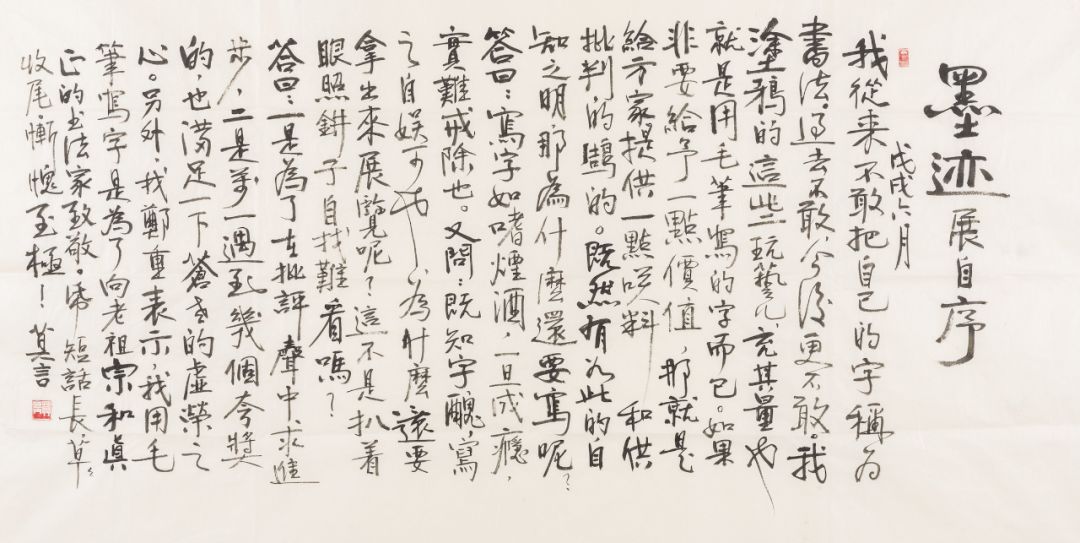 墨迹展自序
戊戌六月
我從来不敢把自己的字稱为
書法,過去不敢,今後更不敢。我
塗鴉的這些玩藝儿,充其量也
就是用毛筆寫的字而已。如果
非要給予一點價值,那就是
給方家提供一點笑料 和供
批判的鵠的。既然有如此的自
知之明那為什麼還要寫呢?
答曰:寫字如嗜煙酒,一旦成癮,
實難戒除也。又問:既知字醜,寫
之自娱可也,為什麼還要
拿出來展覽呢?這不是扒着
眼照鏡子自找難看嗎?
答曰:一是為了在批評聲中求進
步,二是萬一遇到幾個夸獎
的也满足一下蒼老的虚榮之
心。另外,我鄭重表示,我用毛
筆寫字是為了向老祖宗和真
正的书法家致敬。序短話長,草々
收尾慚愧至極!莫言